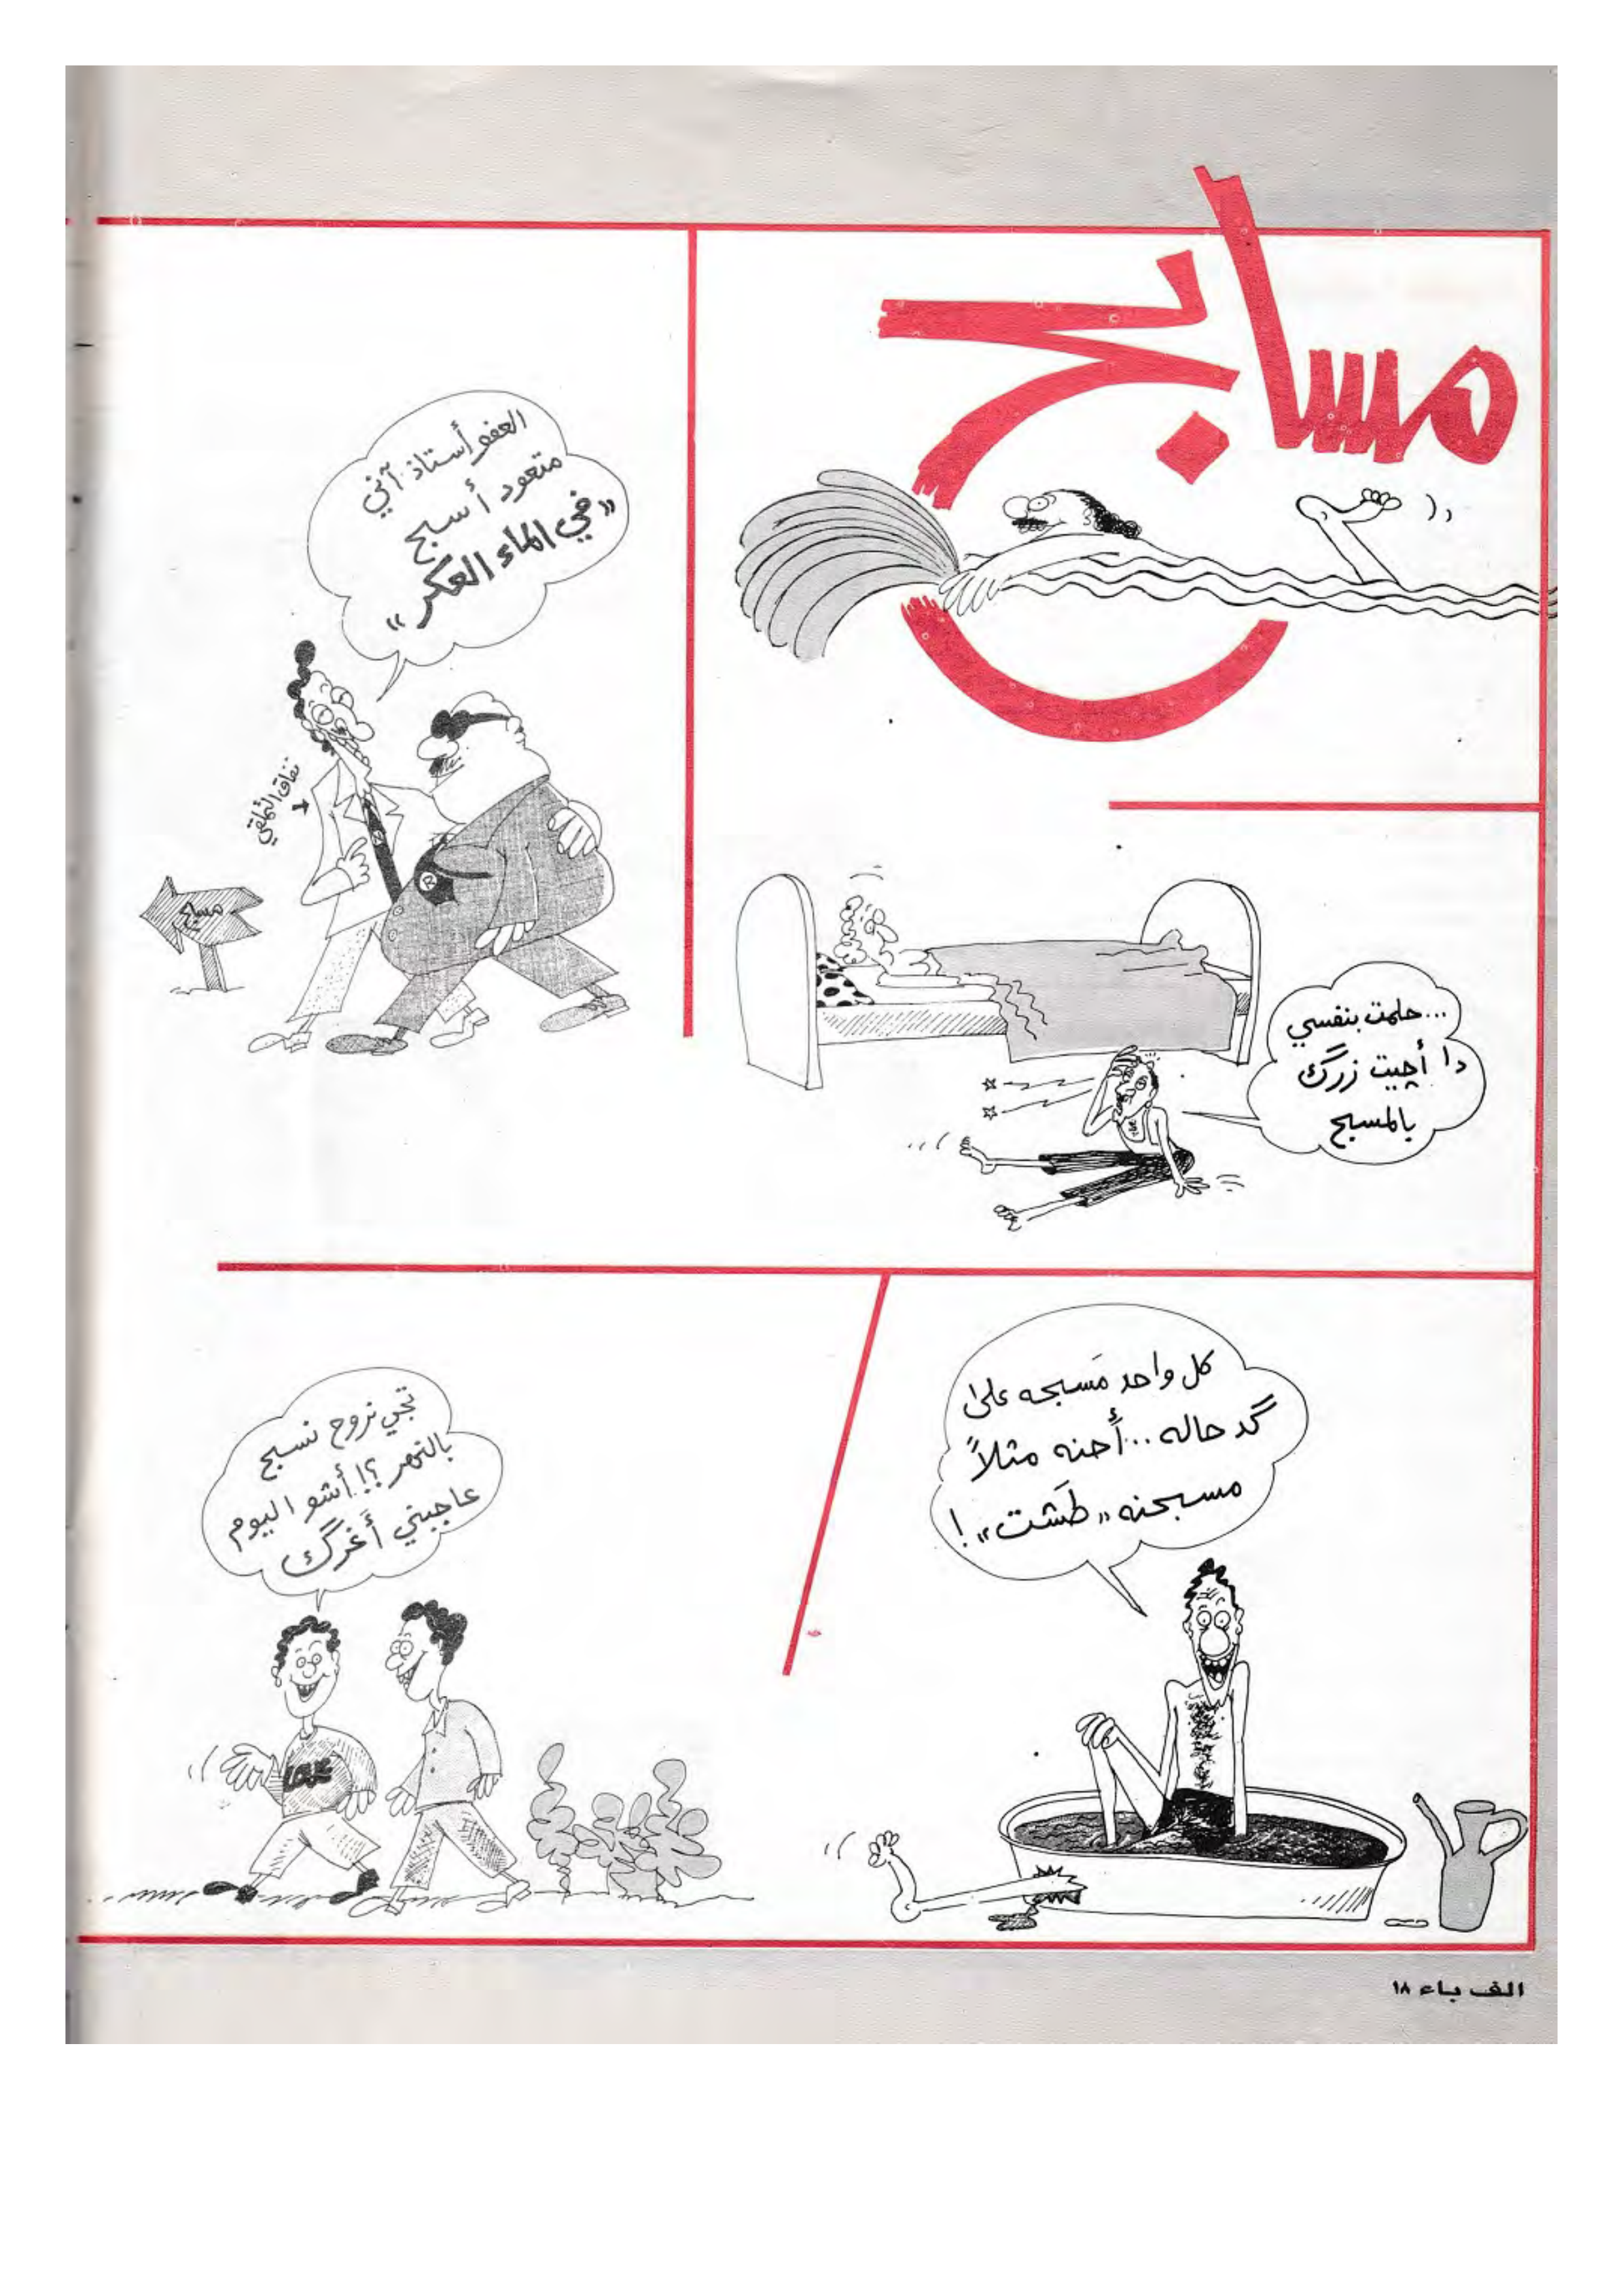 مسابح
العفو أستاذ. آني
متعود أسبح
«في الماء العكر»
نفاق التملقي
مسابح
...حلمت بنفسي
دا أچيت زرگ
بالمسبح
كل واحد مَسبحه على
گد حاله...أحنه مثلاً
مسبحنه «طَشت»!
تجي نروح نسبح
بالنهر؟! أشو اليوم
عاجبني أَغرگك
LOVE
R
الف باء ١٨